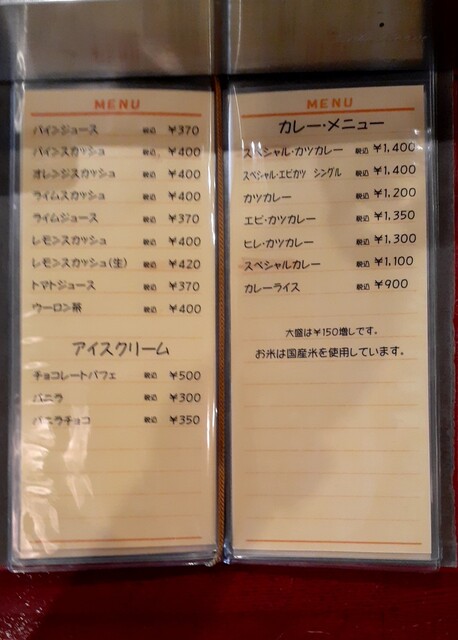 MENU
パインジュース 税込 ¥370
パインスカッシュ 税込 ¥400
オレンジスカッシュ 税込 ¥400
ライムスカッシュ 税込 ¥400
ライムジュース 税込 ¥370
レモンスカッシュ 税込 ¥400
レモンスカッシュ(生) 税込 ¥420
トマトジュース 税込 ¥370
ウーロン茶 税込 ¥400
アイスクリーム
チョコレートパフェ 税込 ¥500
バニラ 税込 ¥300
バニラチョコ 税込 ¥350
MENU
カレー・メニュー
スペシャル・カツカレー 税込 ¥1,400
スペシャル・エビカツ シングル 税込 ¥1,400
カツカレー 税込 ¥1,200
エビ・カツカレー 税込 ¥1,350
ヒレ・カツカレー 税込 ¥1,300
スペシャルカレー 税込 ¥1,100
カレーライス 税込 ¥900
大盛は¥150増しです。
お米は国産米を使用しています。